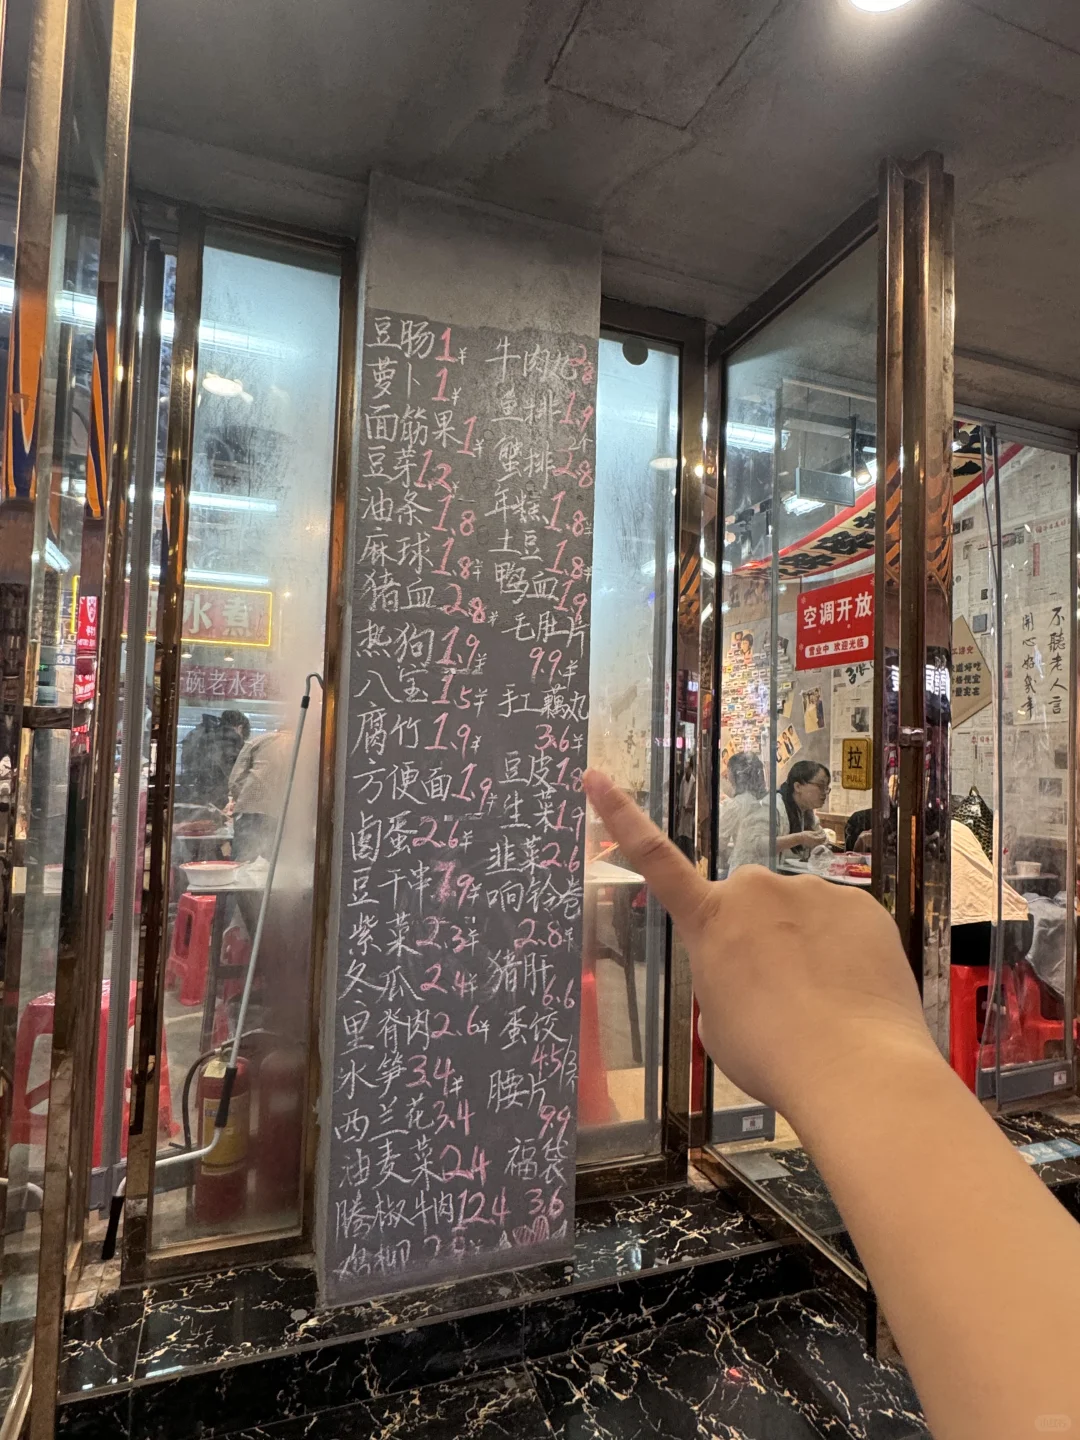 豆肠1￥
萝卜1￥
面筋果1￥
豆芽1.2￥
油条1.8
麻球1.8￥
猪血2.8￥
热狗1.9￥
八宝1.5￥
腐竹1.9￥
方便面1.9￥
卤蛋2.6￥
豆干串7.9￥
紫菜2.3￥
冬瓜2.4￥
里脊肉2.6￥
水笋3.4￥
西兰花3.4
油麦菜2.4
腾椒牛肉12.4
鸡柳
牛肉丸2.8
鱼排1.9
蟹排2.8
年糕1.8
土豆1.8￥
鸭血1.9
毛肚片
9.9￥
手工藕丸
3.6￥
豆皮1.8
生菜1.9
韭菜2.6
响铃卷
2.8￥
猪肝
6.6
蛋饺
4.5/3个
腰片
9.9
福袋
3.6
水煮
碗老水煮
空调开放
营业中 欢迎光临
拉
PULL
不聽老人言
開心好幾年